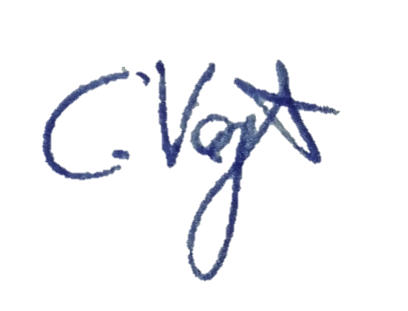 C. Vogt